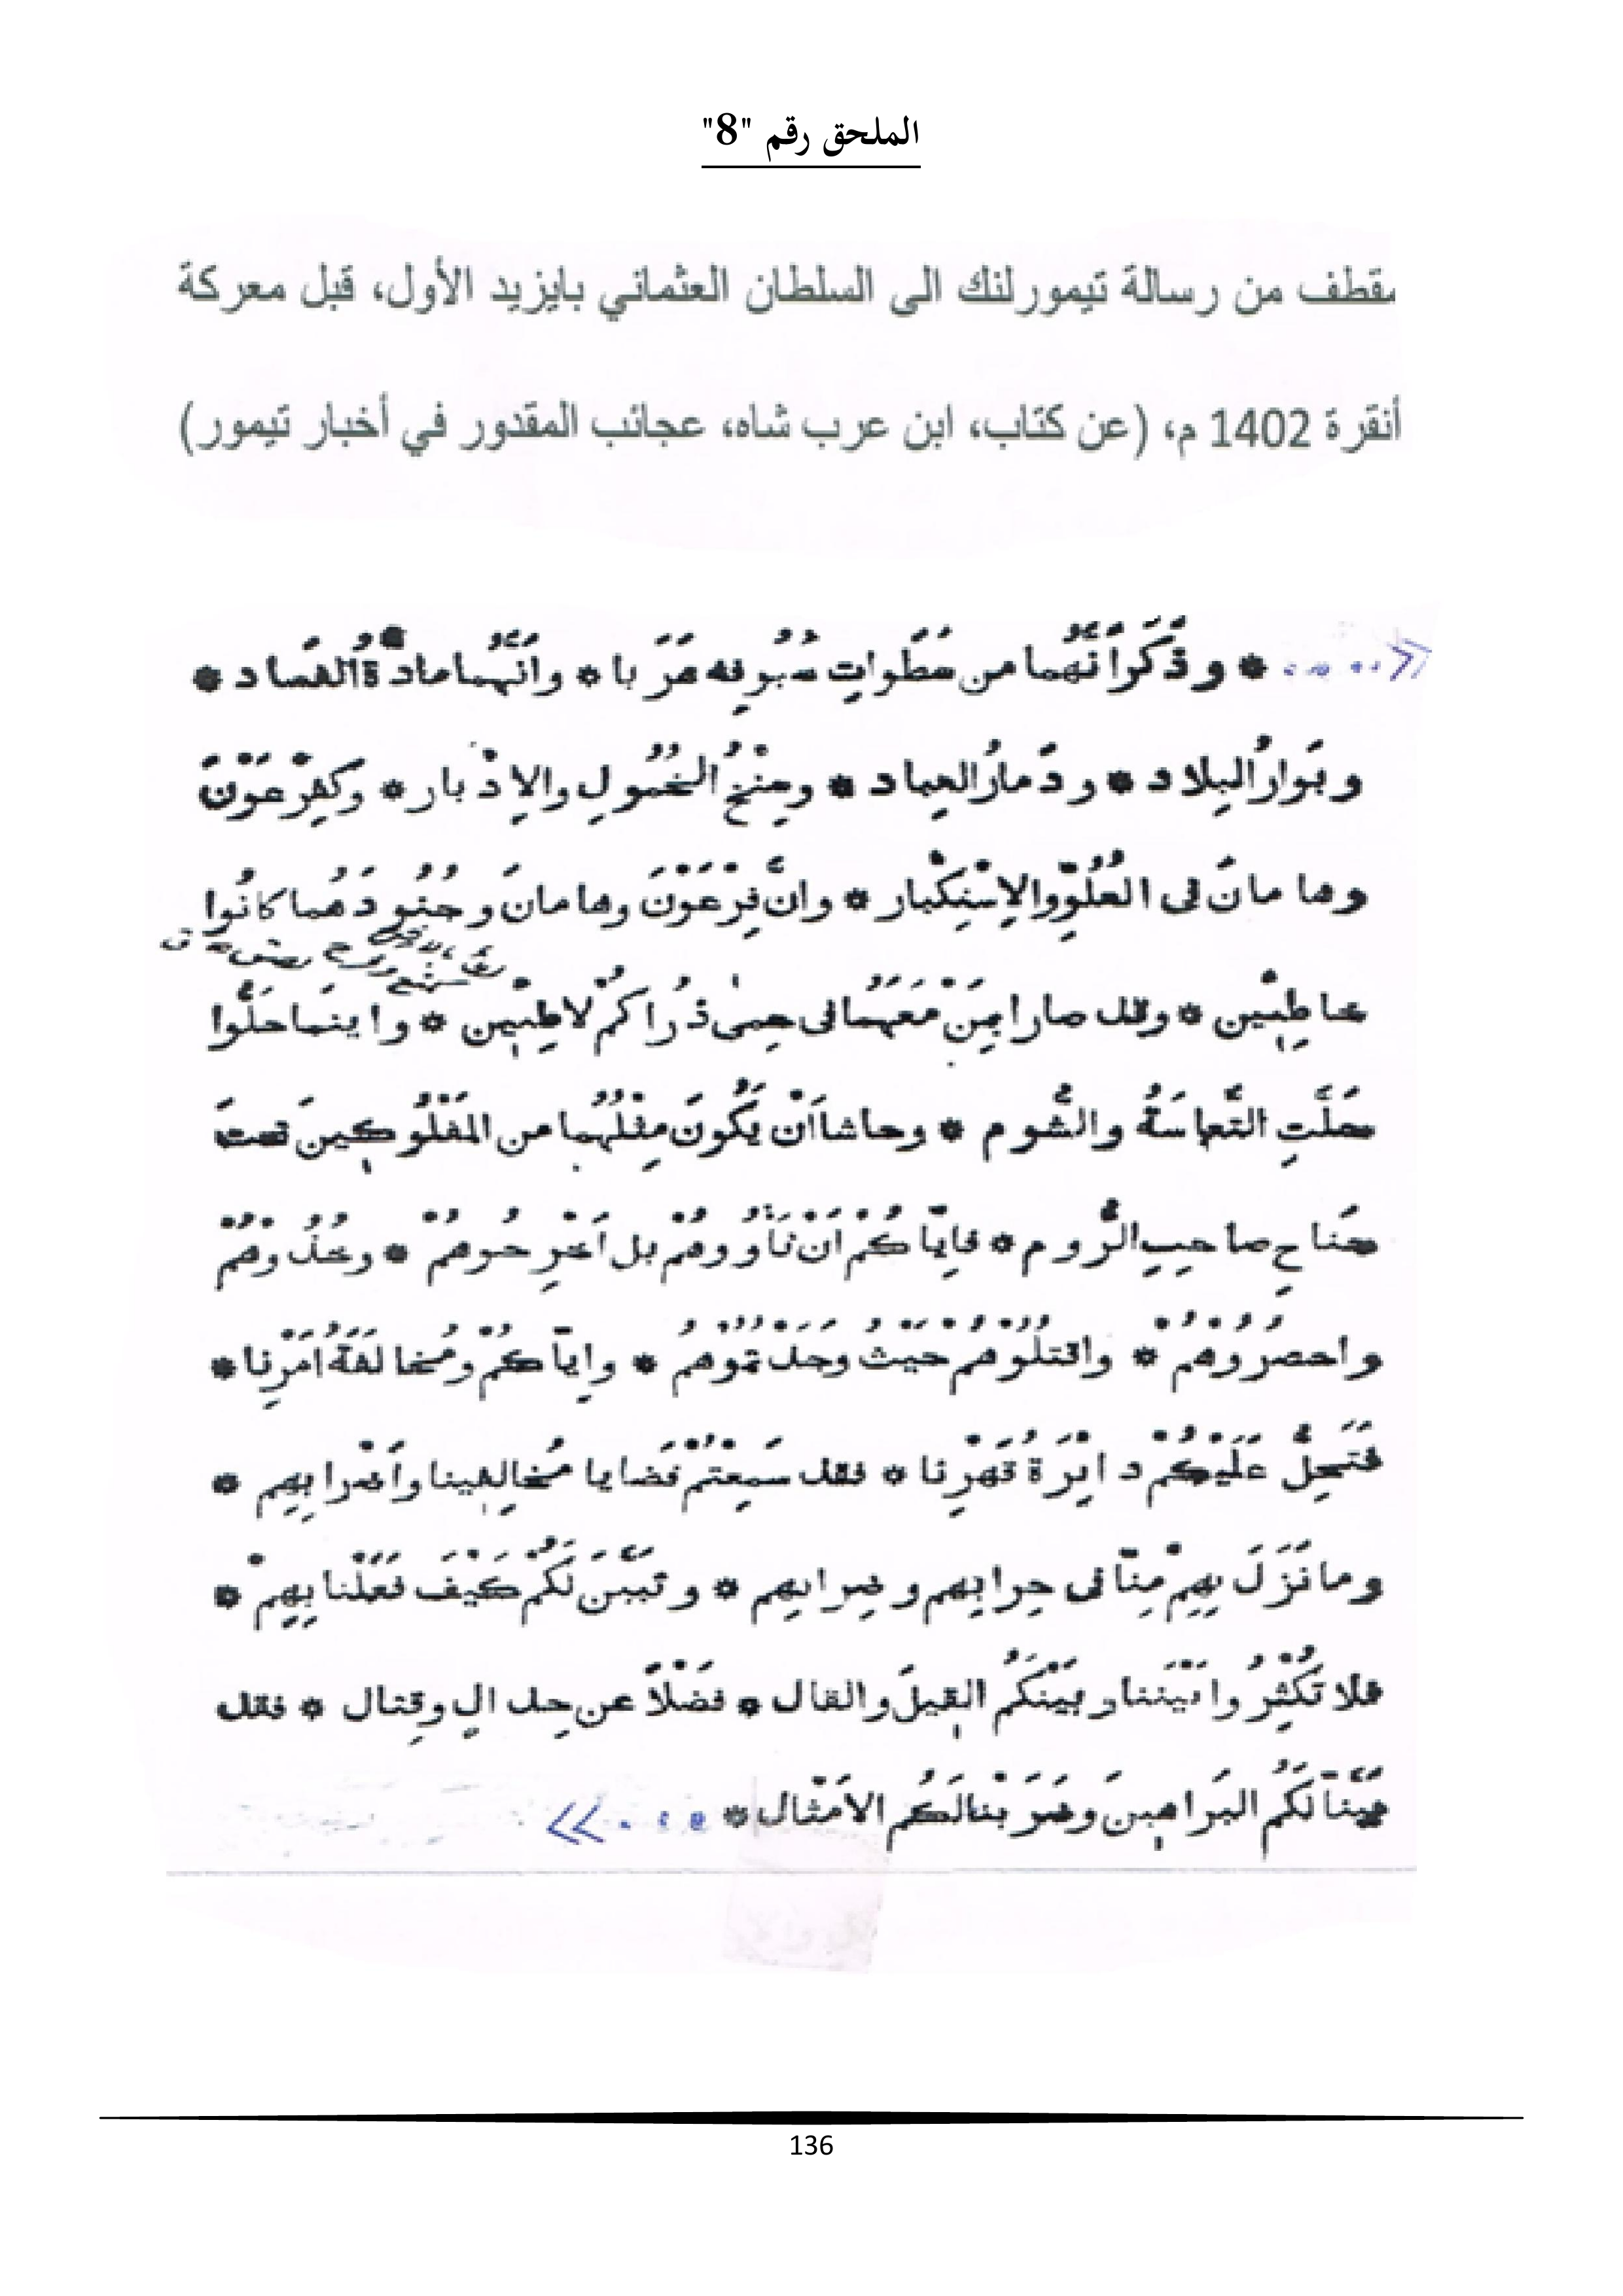 الملحق رقم "8"
مقطف من رسالة تيمورلنك الى السلطان العثماني بايزيد الأول، قبل معركة
أنقرة 1402 م، (عن كتاب، ابن عرب شاه، عجائب المقدور في أخبار تيمور)
>>.... * وذَكَرَ أنَّهُما من سَطَواتِ سُيُوفِه هَرَبا * وانَّهُما مادَّةُ الفَساد *
وبَوارُ البِلاد * ودَمارُ العِباد * والخُمُولِ والإِدْبار * وكفِرْعَوْنَ
وهامانَ فى العُلُوِّ والإِسْتِكْبار * وانَّ فِرْعَوْنَ وهامانَ وجُنُودَهُما كانُوا
خاطِئِين * وقد صارا بِمَنْ مَعَهُما فى حِمىٰ ذُراكُمْ لاطِئِين * واينَما حَلُّوا
حَلَّتِ التَّعاسَةُ والشُّوم * وحاشا اَنْ يَكُونَ مِثْلُهُما من المَفْلُوكِينَ تحت
جَناحِ صاحِبِ الرُّوم * فايّاكُمْ اَنْ تَأْوُوهُمْ بل اَخْرِجُوهُمْ * وخُذُوهُمْ
واحصُرُوهُمْ * واقتُلُوْهُم حَيْثُ وَجَدْتُمُوهُم * وايّاكُمْ ومُخالَفَةَ امْرِنا *
فَتَحِلُّ عَلَيْكُمْ دايْرَةُ قَهْرِنا * فقد سَمِعْتُمْ قَضايا مُخالِفِينا واَضْرابِهِم *
وما نَزَلَ بِهِمْ مِنّا فى حِرابِهِم وضِرابِهِم * وتَبَيَّنَ لَكُمْ كَيْفَ فَعَلْنا بِهِمْ *
فلا تُكْثِرُوا بَيْنَنا وبَيْنَكُمُ القِيلَ والقال * فَضْلاً عن جِدالٍ وقِتال * فقد
بَيَّنّا لَكُمُ البَراهِينَ وضَرَبْنا لَكُمُ الاَمْثال * ....<<
136